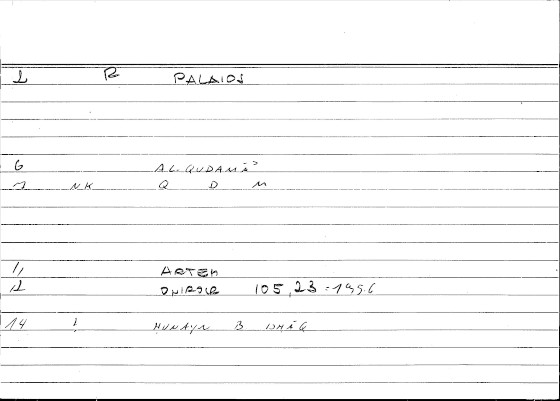 1 R PALAIOS
6 AL-QUDAMĀʾ
7 NK Q D M
11 ARTEM
12 ONIROCR 105,23 = 195.6
14 ! HUNAYN B ISHĀQ